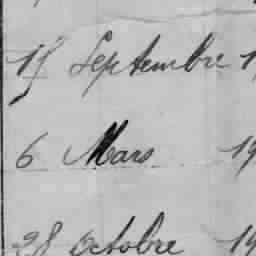 15 Septembre 1
6 Mars 19
28 Octobre 19